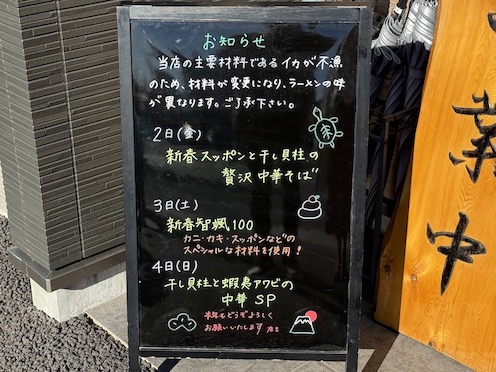 お知らせ
当店の主要材料であるイカが不漁
のため、材料が変更になり、ラーメンの味
が異なります。ご了承下さい。
2日(金)
新春スッポンと干し貝柱の
贅沢中華そば
3日(土)
新春智颯100
カニ・カキ・スッポンなどの
スペシャルな材料を使用!
4日(日)
干し貝柱と蝦夷アワビの
中華SP
本年もどうぞよろしく
お願いいたします 店主
中